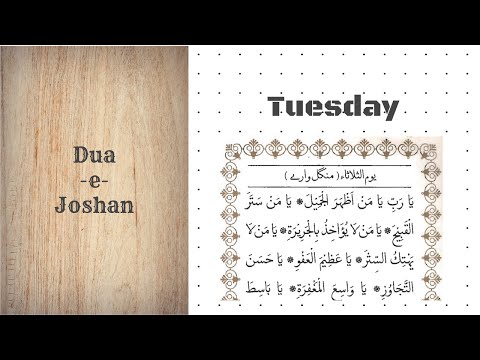 Dua
-e-
Joshan
Tuesday
يوم الثلاثاء (منگل وارے)
يَا رَبِّ يَا مَنْ أَظْهَرَ الْجَمِيْلَ ۞ يَا مَنْ سَتَرَ
الْقَبِيْحَ ۞ يَا مَنْ لَا يُؤَاخِذُ بِالْجَرِيْرَةِ ۞ يَا مَنْ لَا
يَهْتِكُ السِّتْرَ ۞ يَا عَظِيْمَ الْعَفْوِ ۞ يَا حَسَنَ
التَّجَاوُزِ ۞ يَا وَاسِعَ الْمَغْفِرَةِ ۞ يَا بَاسِطَ